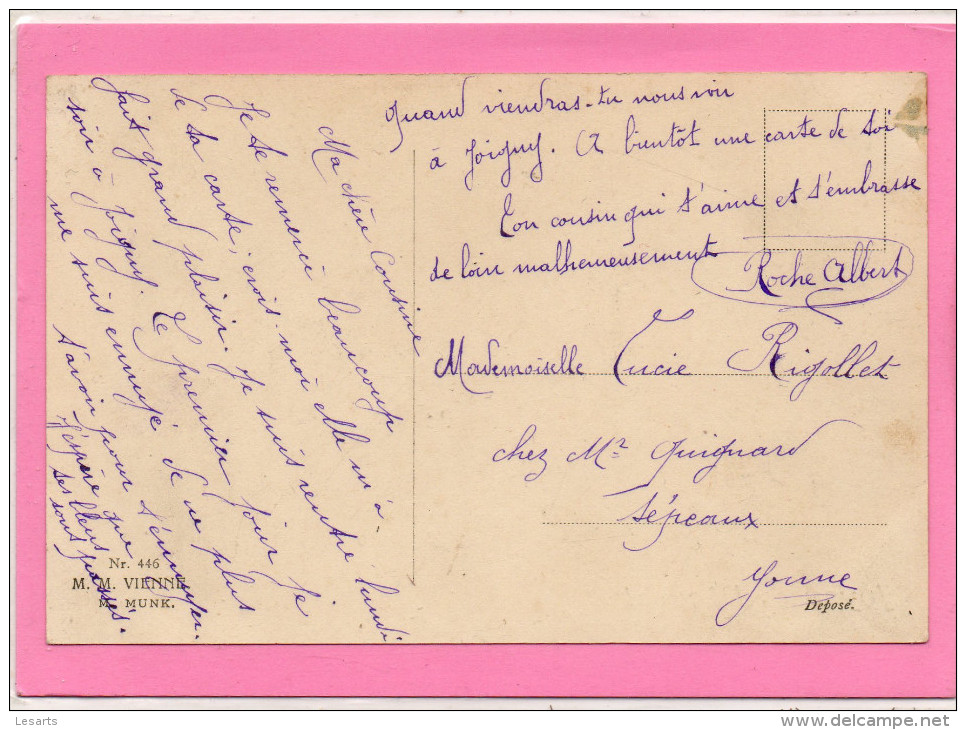 Ma chère Cousine
Je te remercie beaucoup
de ta carte, crois-moi elle m'a
fait grand plaisir. Je suis rentré lundi
soir à Joigny. Le premier jour je
me suis ennuyé de ne plus
t'avoir pour t'ennuyer.
J'espère que
tes bleus
sont passés.
Quand viendras-tu nous voir
à Joigny. A bientôt une carte de toi
Ton cousin qui t'aime et t'embrasse
de loin malheureusement
Roche Albert
Mademoiselle Lucie Rigollet
chez Mr Guignard
Sépeaux
Yonne
Nr. 446
M. M. VIENNE
M. MUNK.
Déposé.
Lesarts
www.delcampe.net